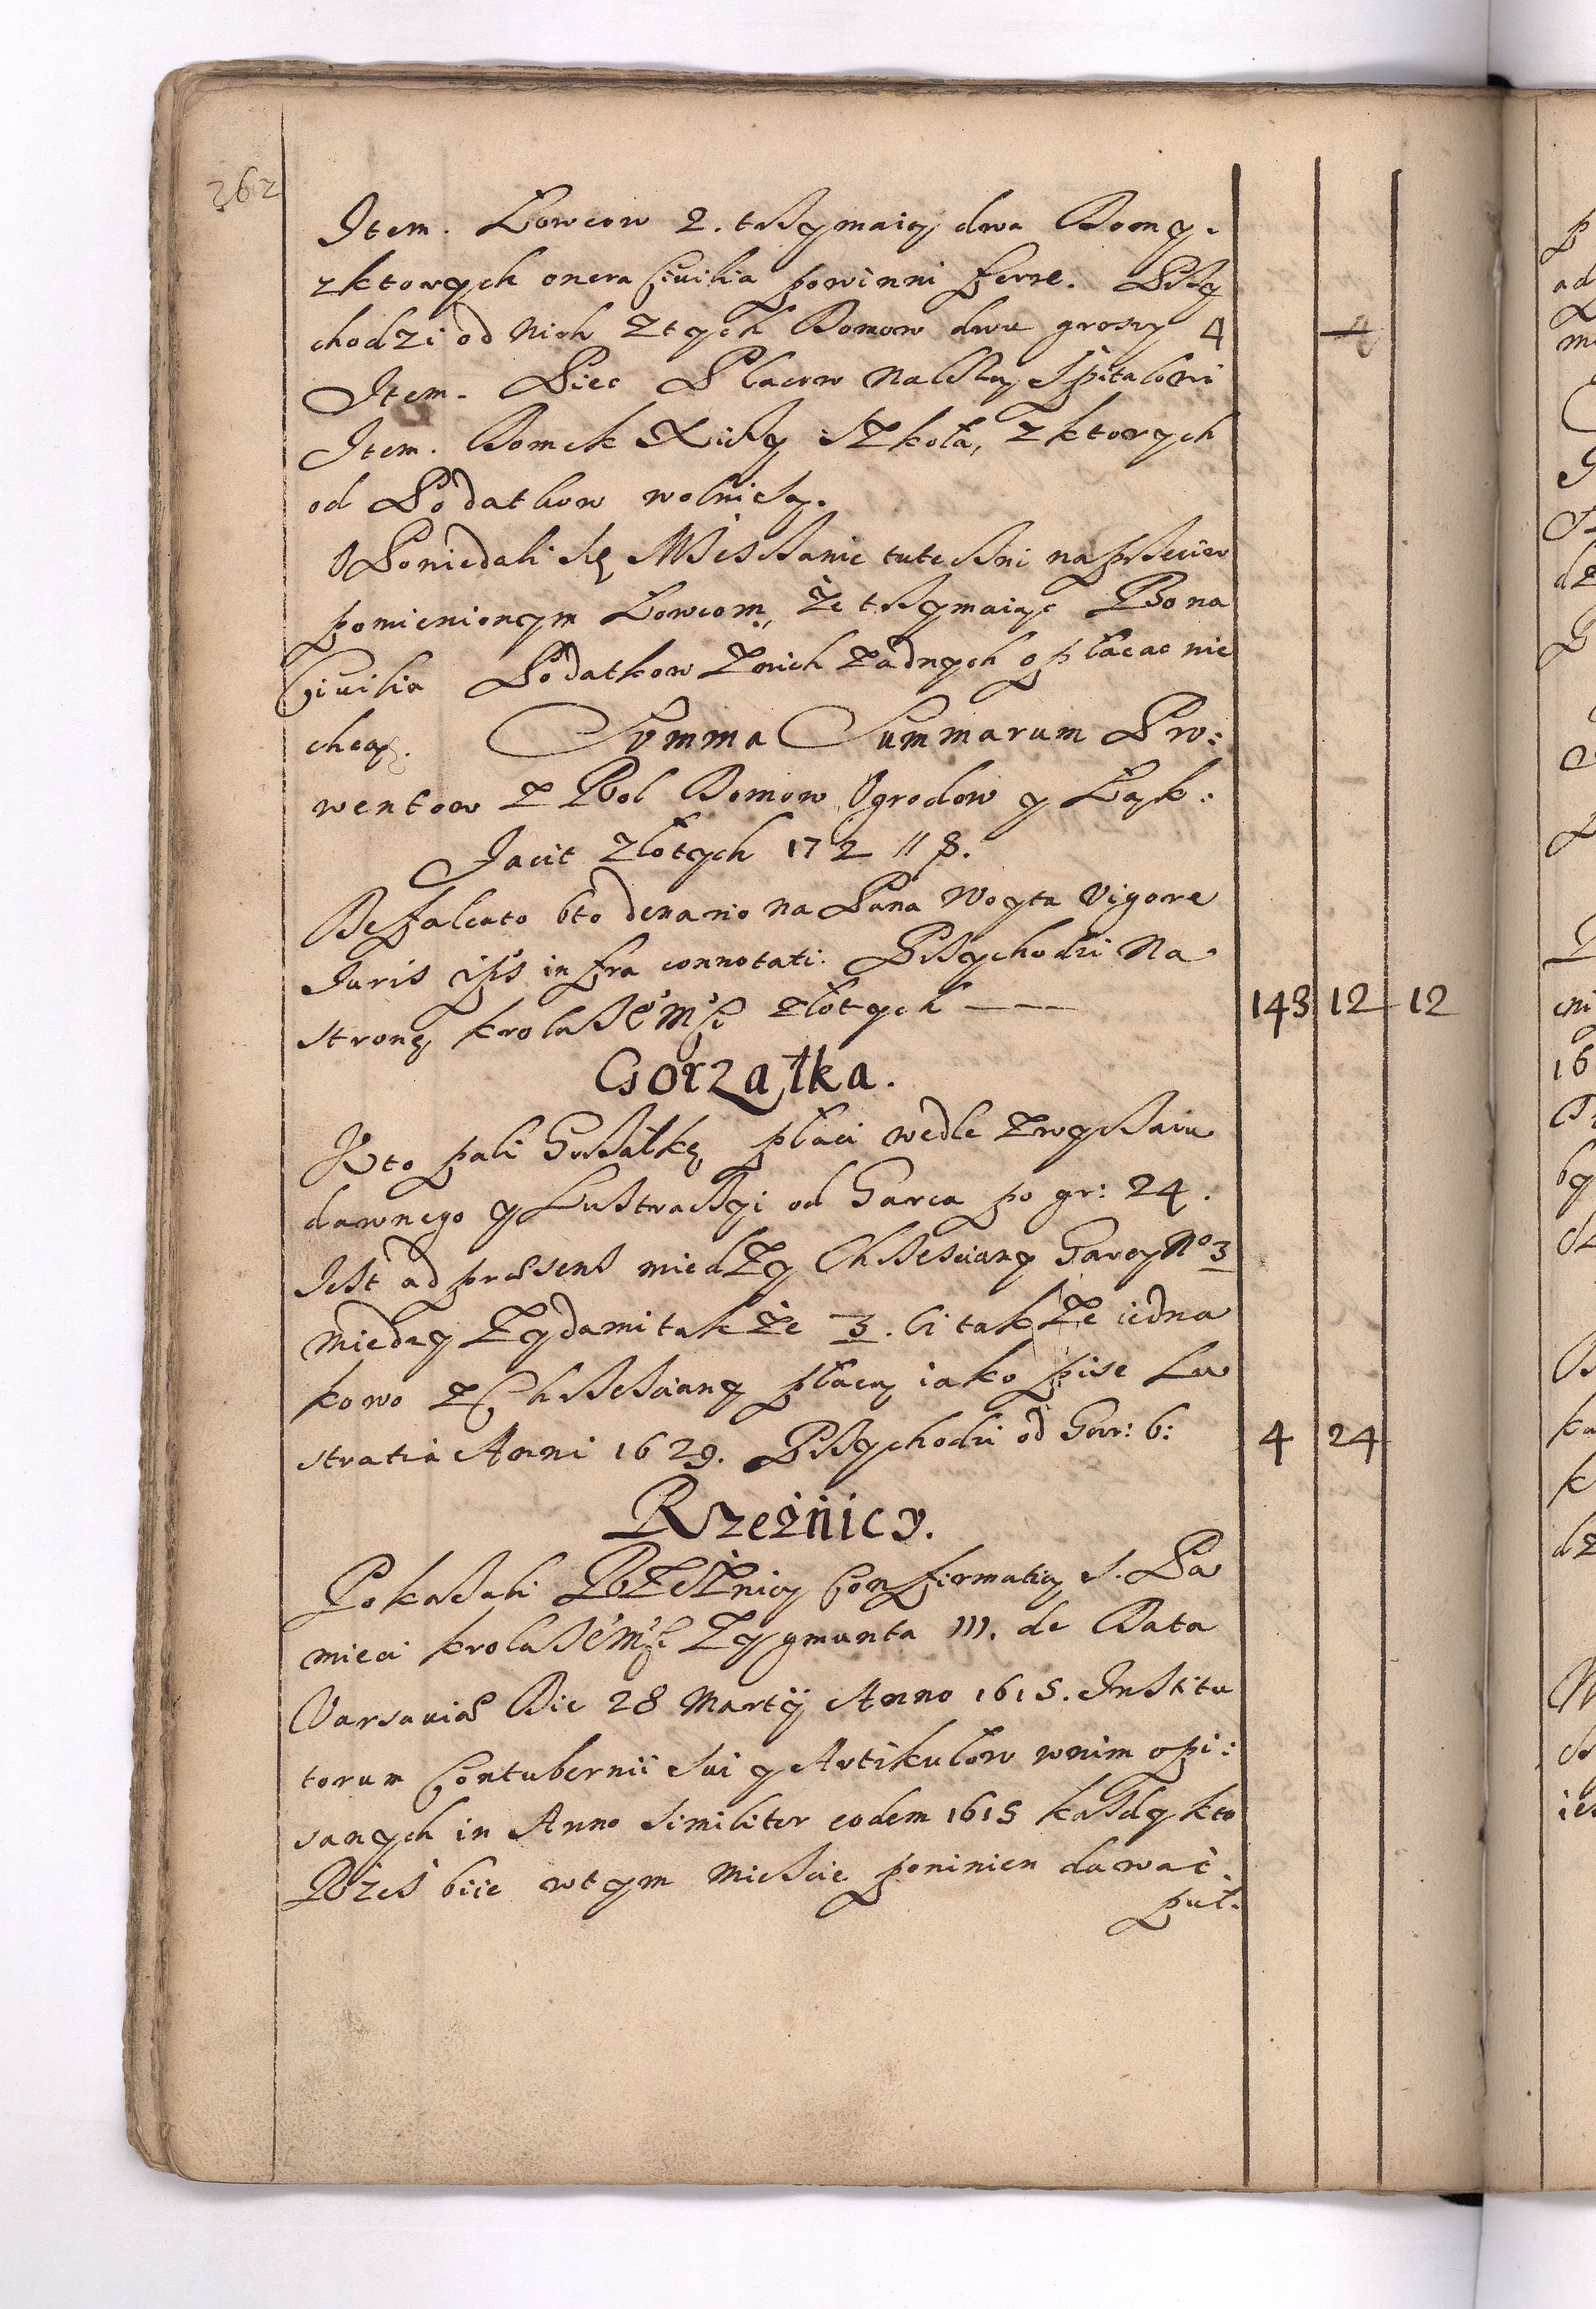 262
Item. Łowcow 2. trzymaią dwa Domy.
z ktorych onera Civilia powinni ferre. Przy
chodzi od nich z tych Domow dwu groszy 4 4
Item. Pięc Placow należy Szpitalowi
Item. Domek Xięży Szkoła, z ktorych
od Podatkow wolni są.
Opowiedali się Miesczanie tuteczni naprzeciw
pomienionym Łowcom, że trzymaiąc Bona
Civilia Podatkow z nich żadnych opłacac nie
chcą. Summa Summarum Pro:
wentow z Rol Domow Ogrodow y Łąk:
Facit złotych 172 11 ß.
Defalcato 6to denario na Pana Woyta Vigore
Iuris ips̃ infra connotati. Przychodzi na
stronę Krola Jẽ Mci złotych — 143 12 12
Gorzałka.
Kto pali Gorzałkę płaci wedle zwyczaiu
dawnego y Lustraczyi od Garca po gr: 24.
Jest ad præsens miedzy Chrzesciany Garcy No 3
miedzy Zydami także 3. Ci także iedna
kowo z Chrzesciany płacą iako pise Lu
stratia Anni 1629. Przychodzi od Gar: 6: 4 24
Rzeżnicy.
Pokazali Rzeżnicy Confirmatią S. Pa
mięci Krola Jẽ Mci Zygmunta III. de Data
Varsaviæ Die 28 Martij Anno 1615. Institu
torum Contubernii sui y Artikułow w nim opi:
sanych in Anno similiter eodem 1615 każdy kto
Rzeź biie w tym Miescie powinien dawać
puł.